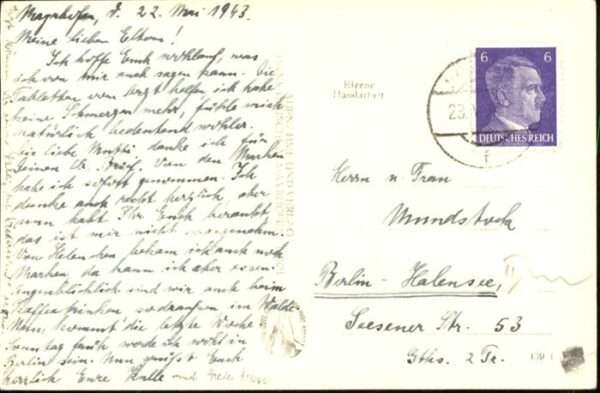 Mayrhofen, d. 22. Mai 1943.
Meine lieben Eltern!
Ich hoffe Euch wohlauf, was
ich von mir auch sagen kann. Die
Tabletten vom Arzt helfen ich habe
keine Schmerzen mehr, fühle mich
natürlich bedeutend wohler.
Die liebe Mutti danke ich für
Deinen lb. Von den Marken
habe ich sofort genommen. Ich
danke auch recht herzlich, aber
nun habt Ihr Euch beraubt,
das ist mir nicht angenehm.
Von bekam ich auch noch
Marken da kann ich aber essen.
Augenblicklich sind wir auch beim
Kaffee trinken im Walde.
Nun kommt die letzte Woche
Sonntag früh werde ich wohl in
Berlin sein. Nun grüsst Euch
herzlich Eure und
6 6
DEUTSCHES REICH
23.
Eigene
Handarbeit
Herrn u Frau
Mundstock
Berlin-Halensee,
Seesener Str. 53
Gths. 2 Tr.